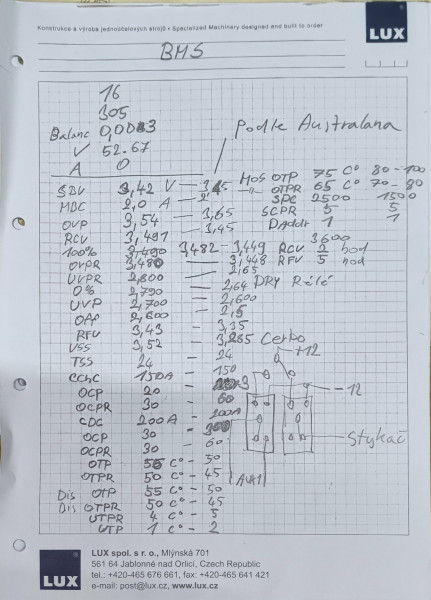 Konstrukce a výroba jednoúčelových strojů • Specialized Machinery designed and built to order
LUX
BMS
16
305
Balanc 0,003
V 52.67
A 0
Podle Australana
SBV 3,42 V — 3,45
MBC 2,0 A — 2
OVP 3,54 — 3,65
RCV 3,491 — 3,45
100% 3,490 3,482 — 3,449 RCV 2 hod
OVPR 3,480 — 3,448 RFV 5 hod
UVPR 2,800 — 2,65
0% 2,790 — 2,64 DRY Rélé
UVP 2,700 — 2,600
2,600 — 2,5
RFV 3,43 — 3,35
VSS 3,52 — 3,285
TSS 24 — 24
CChC 150A — 150
OCP 20
OCPR 30 — 60
CDC 200A — 200A
OCP 30
OCPR 30 — 60
OTP 55 C° — 50
OTPR 50 C° — 45
Dis OTP 55 C° — 50
Dis OTPR 50 C° — 45
UTPR 4 C° — 5
UTP 1 C° — 2
MOS OTP 75 C° 80 - 100
-"- OTPR 65 C° 70 - 80
SPC 2500 1500
SCPR 5 5
1 1
3600
Cerbo
+12
-12
Stykač
AUX1
LUX
LUX spol. s r. o., Mlýnská 701
561 64 Jablonné nad Orlicí, Czech Republic
tel.: +420-465 676 661, fax: +420-465 641 421
e-mail: post@lux.cz, www.lux.cz